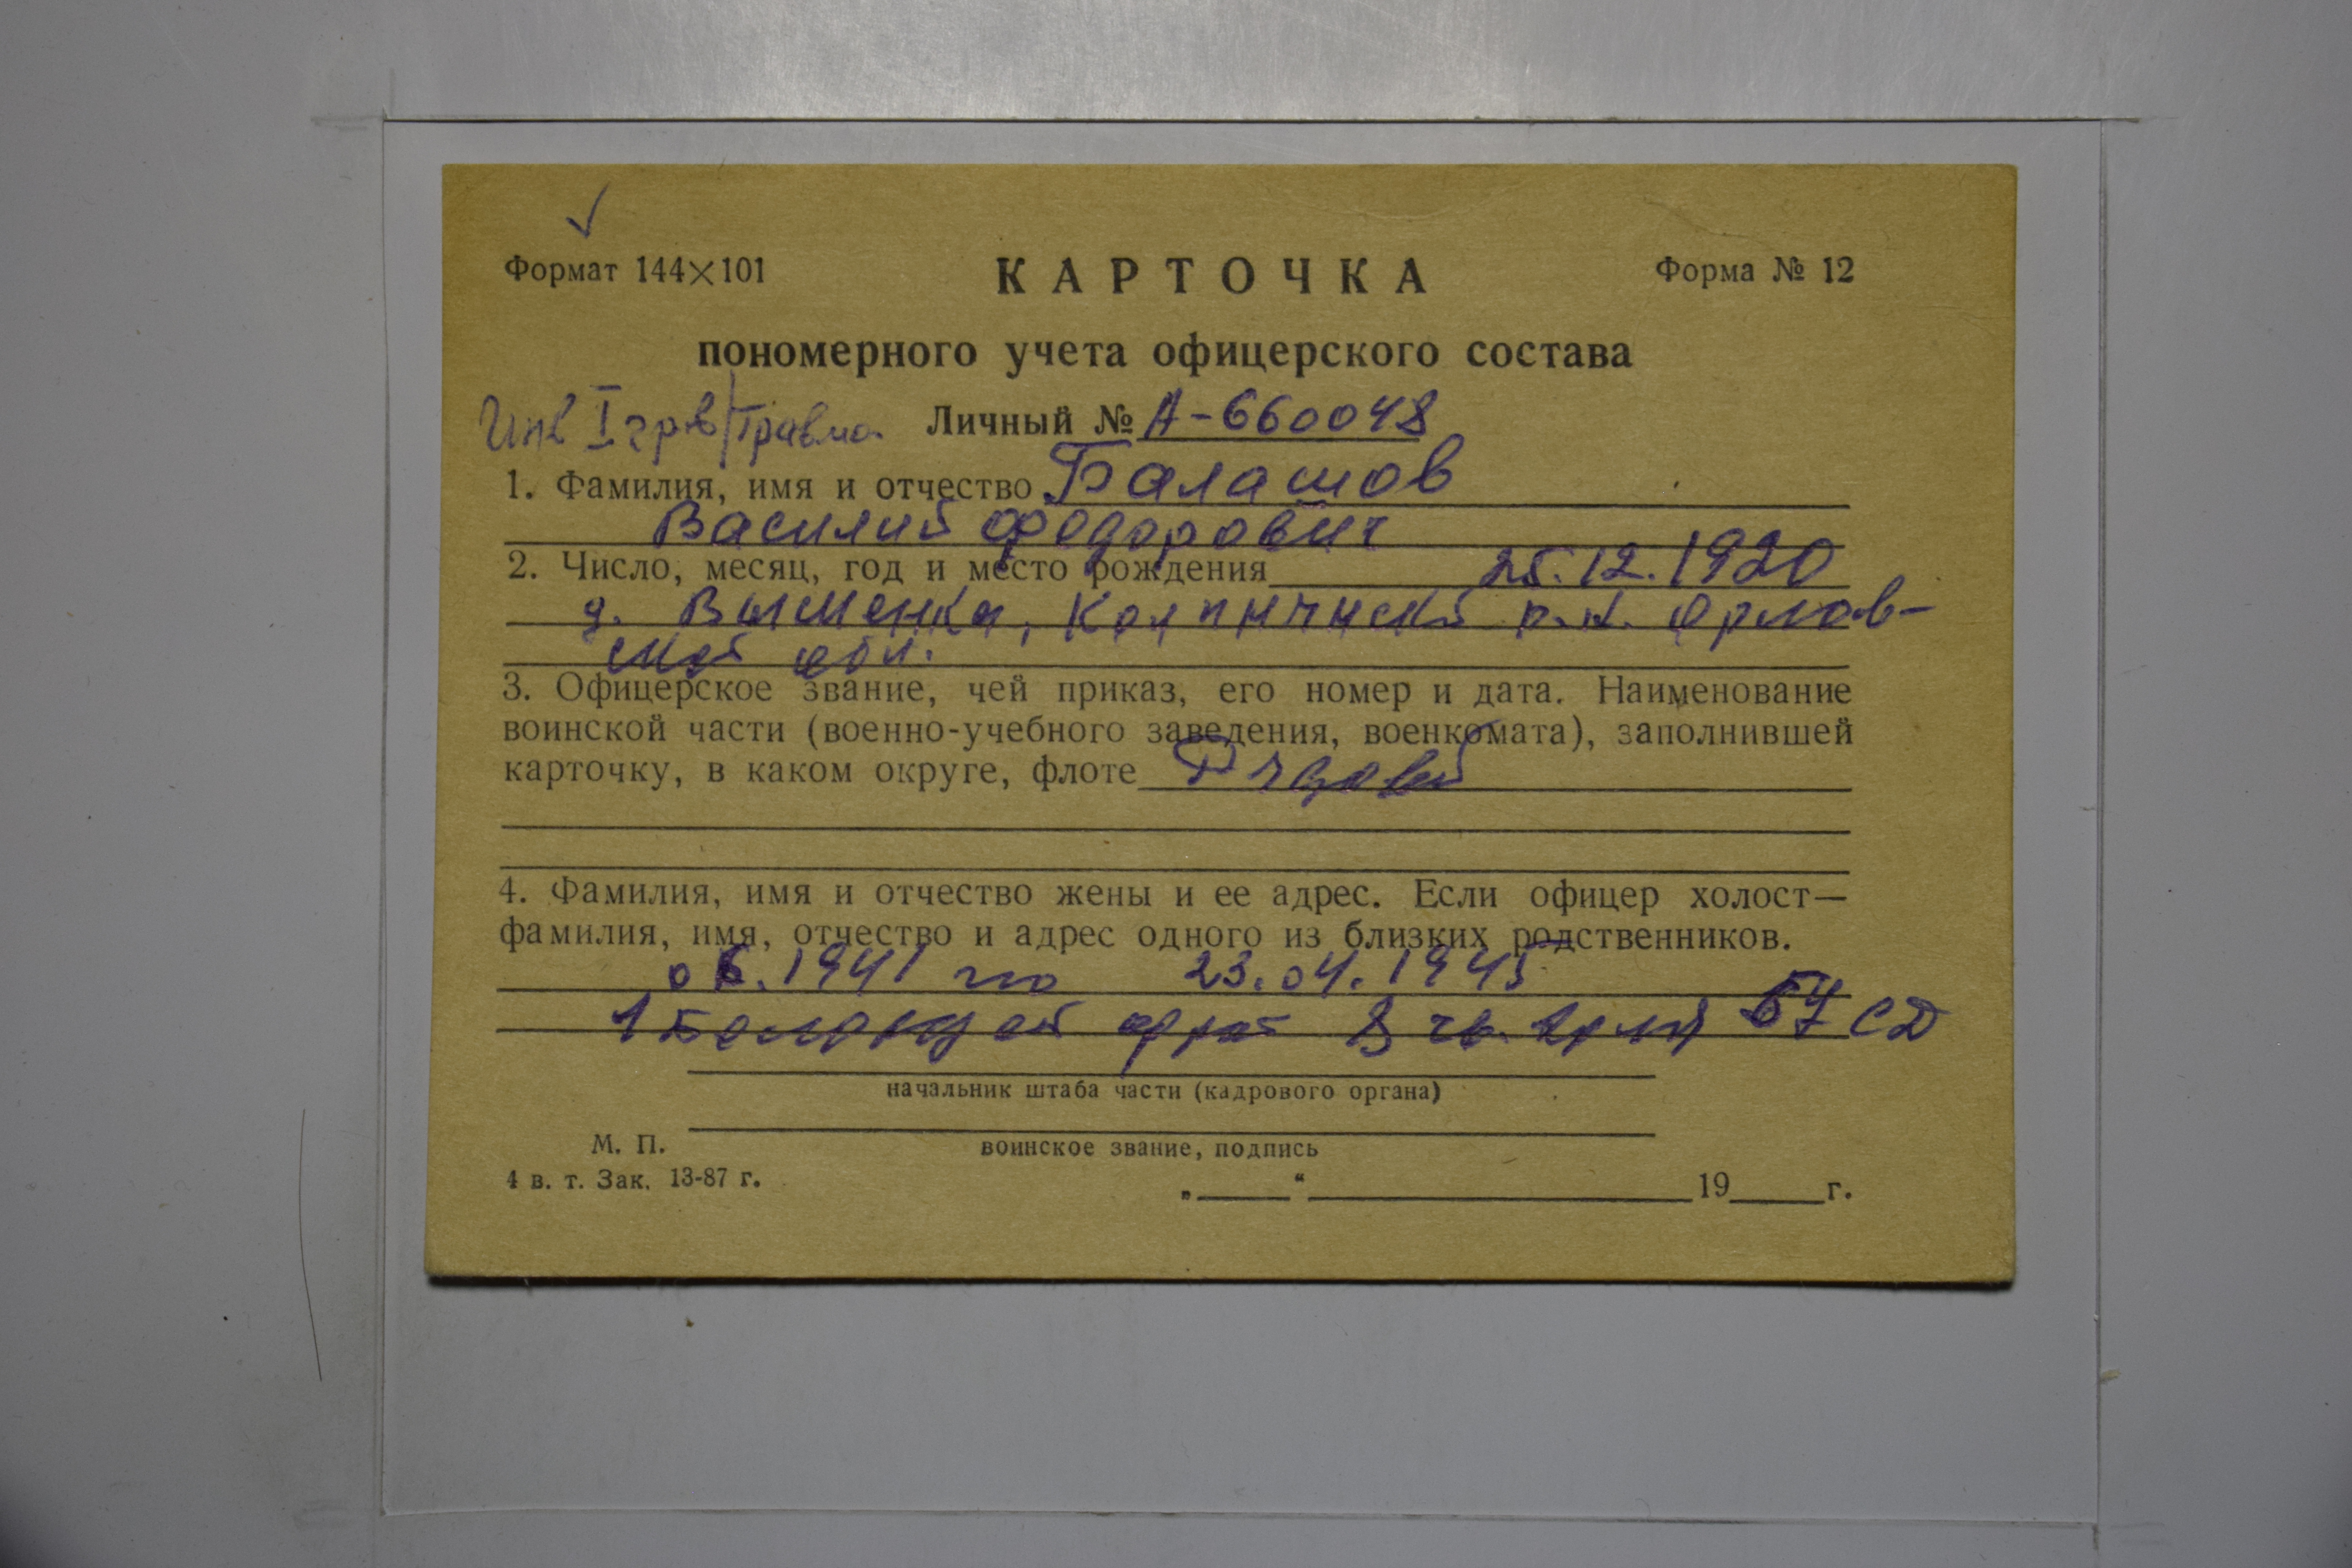 Формат 144×101
КАРТОЧКА
Форма № 12
пономерного учета офицерского состава
Инв I гр в/травма. Личный № А-660048
1. Фамилия, имя и отчество Балашов
Василий Федорович
2. Число, месяц, год и место рождения 25.12.1920
д. р-н. Орлов-
ской обл.
3. Офицерское звание, чей приказ, его номер и дата. Наименование
воинской части (военно-учебного заведения, военкомата), заполнившей
карточку, в каком округе, флоте Рядовой
4. Фамилия, имя и отчество жены и ее адрес. Если офицер холост—
фамилия, имя, отчество и адрес одного из близких родственников.
06.1941 по 23.04.1945
1 8 гв. 57 СД
начальник штаба части (кадрового органа)
М. П.
воинское звание, подпись
4 в. т. Зак. 13-87 г.
„ “ 19 г.